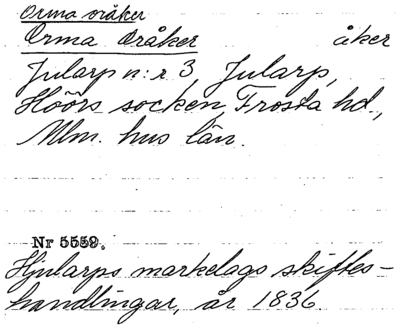 Orma oråker
Orma Oråker åker
Jularp n:r 3, Jularp,
Höörs socken, Frosta hd.,
Mlm. hus län.
Nr 5559.
Hjularps markelags skiftes-
handlingar, år 1836.